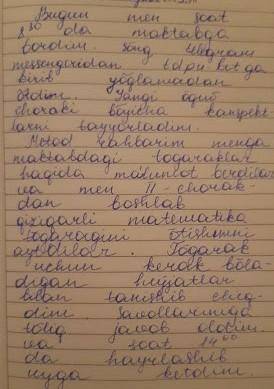 Bugun men soat
8³⁰ da maktabga
bordim. Song telegram
messengeridan tdpu bot ga
kirib yoglamadan
ótdim. Yangi óquv
choraki bóyicha konspekt-
larni tayyorladim.
Metod rahbarim menga
maktabdagi togaraklar
haqida malumot berdilar
va men II-chorak-
dan boshlab
qiziqarli matematika
togaragini ótishimni
aytdilar. Tógarak
uchun kerak bóla-
digan hujjatlar
bilan tanishib chiq-
dim. Savollarimga
tóliq javob oldim.
va soat 14⁰⁰
da hayrlashib
uyga ketdim.